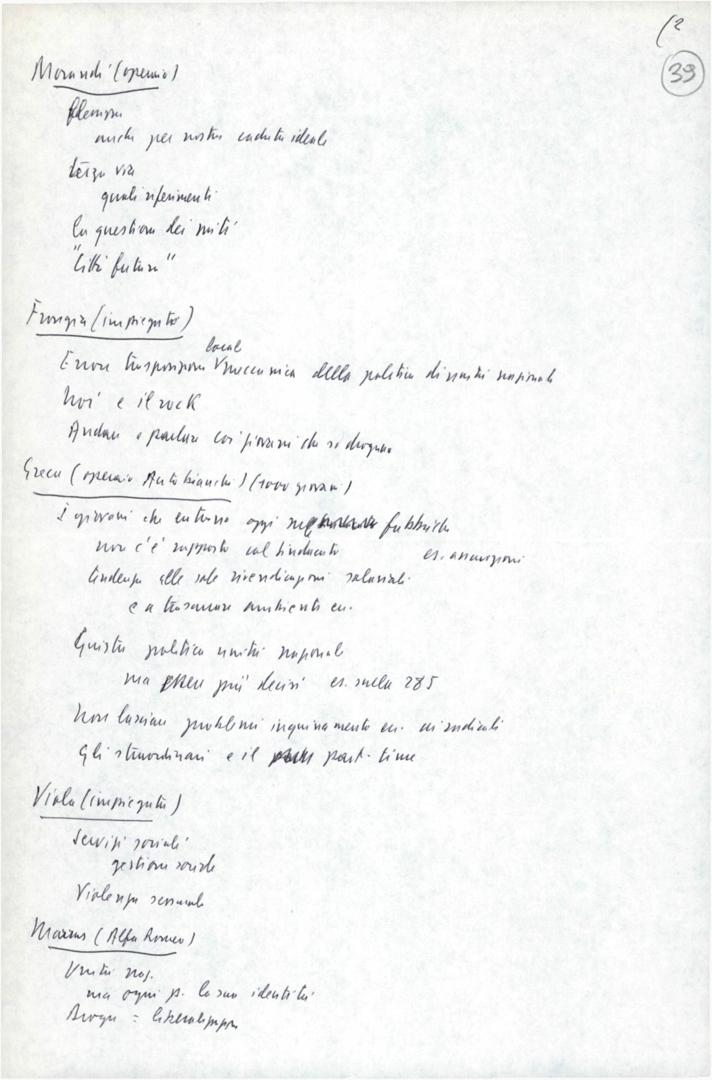 (2
39
Morandi (operaio)
Flemons
anche per nostra caduta ideale
terza via
quali riferimenti
la questione dei miti
"Città futura"
Frongia (impiegato)
local
Errore trasposizione meccanica della politica di unità nazionale
Noi e il rock
Andare a parlare coi giovani che si drogano
Greco (operaio Autobianchi) (1000 giovani)
I giovani che entrano oggi in fabbrica
non c'è rapporto col sindacato es. assunzioni
tendenza alle sole rivendicazioni salariali
e a trascurare ambiente ecc.
Giusta politica unità nazionale
ma essere più decisi es. sulla 285
Non lasciare problemi inquinamento ecc. ai radicali
Gli straordinari e il part-time
Viola (impiegata)
Servizi sociali
gestione sociale
Violenza sessuale
(Alfa Romeo)
Unità naz.
ma ogni p. la sua identità
Droga = liberalizzazione